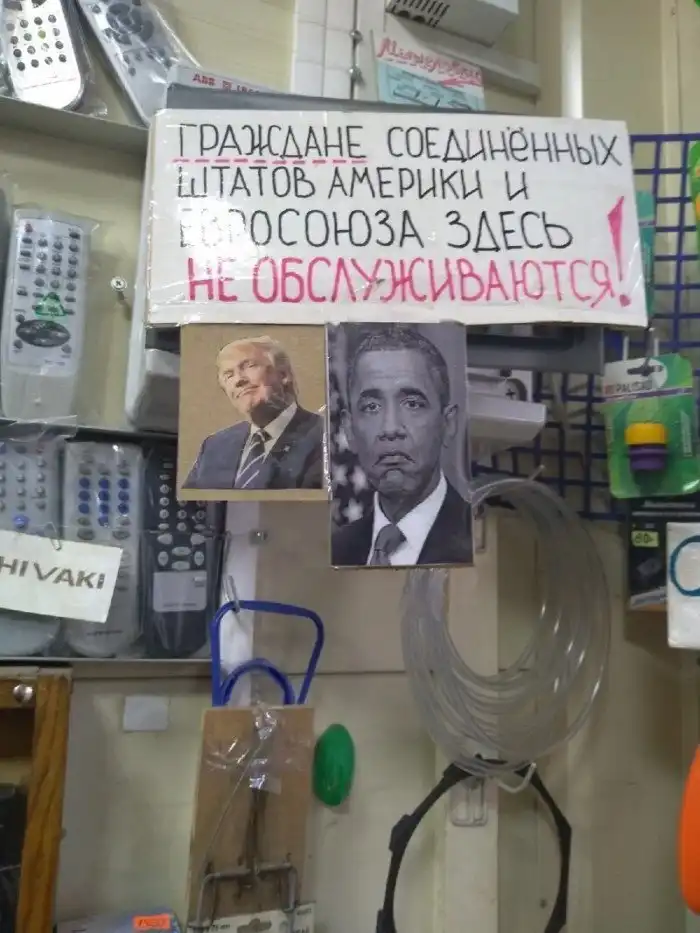 ABB
ГРАЖДАНЕ СОЕДИНЁННЫХ
ШТАТОВ АМЕРИКИ И
ЕВРОСОЮЗА ЗДЕСЬ
НЕ ОБСЛУЖИВАЮТСЯ!
HIVAKI